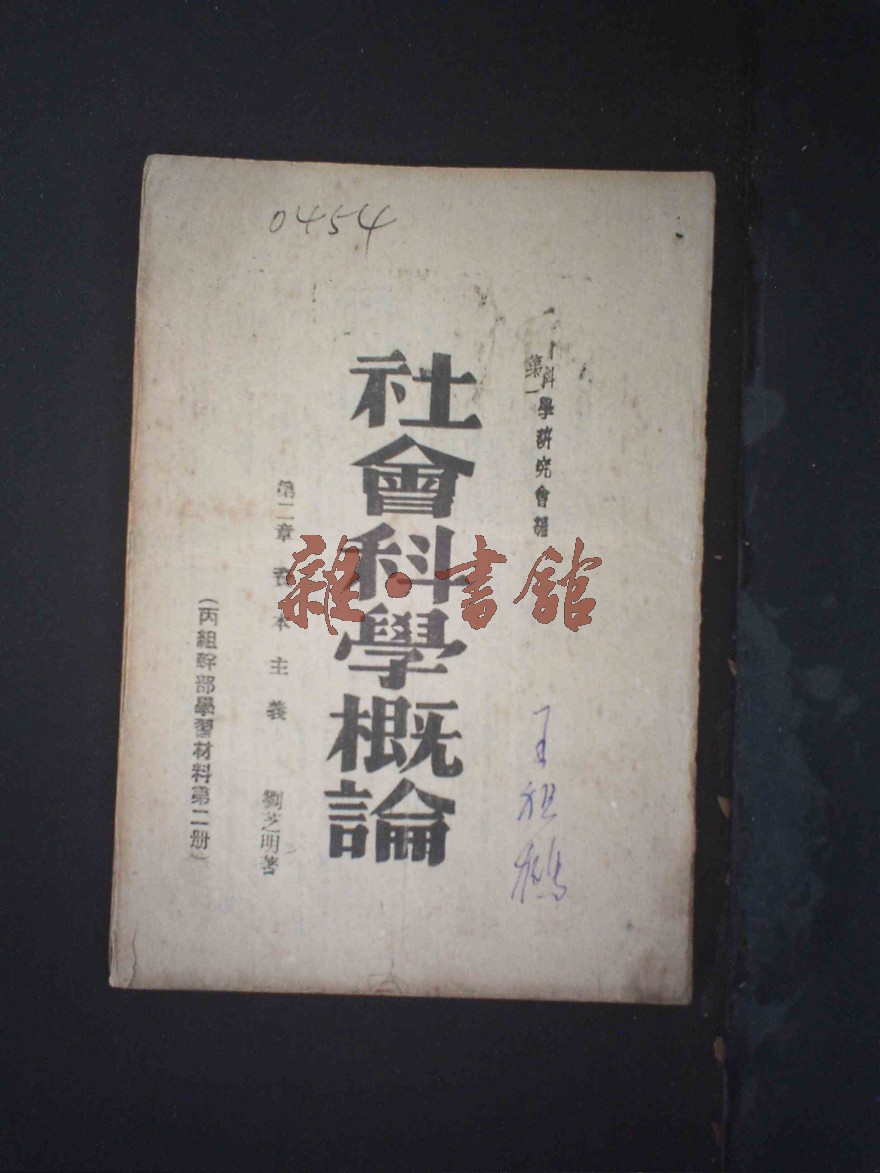 0454
科學研究會編
第一
社會科學概論
第二章 資本主義
劉芝明著
(丙組幹部學習材料第二册)
王祖
雜·書館